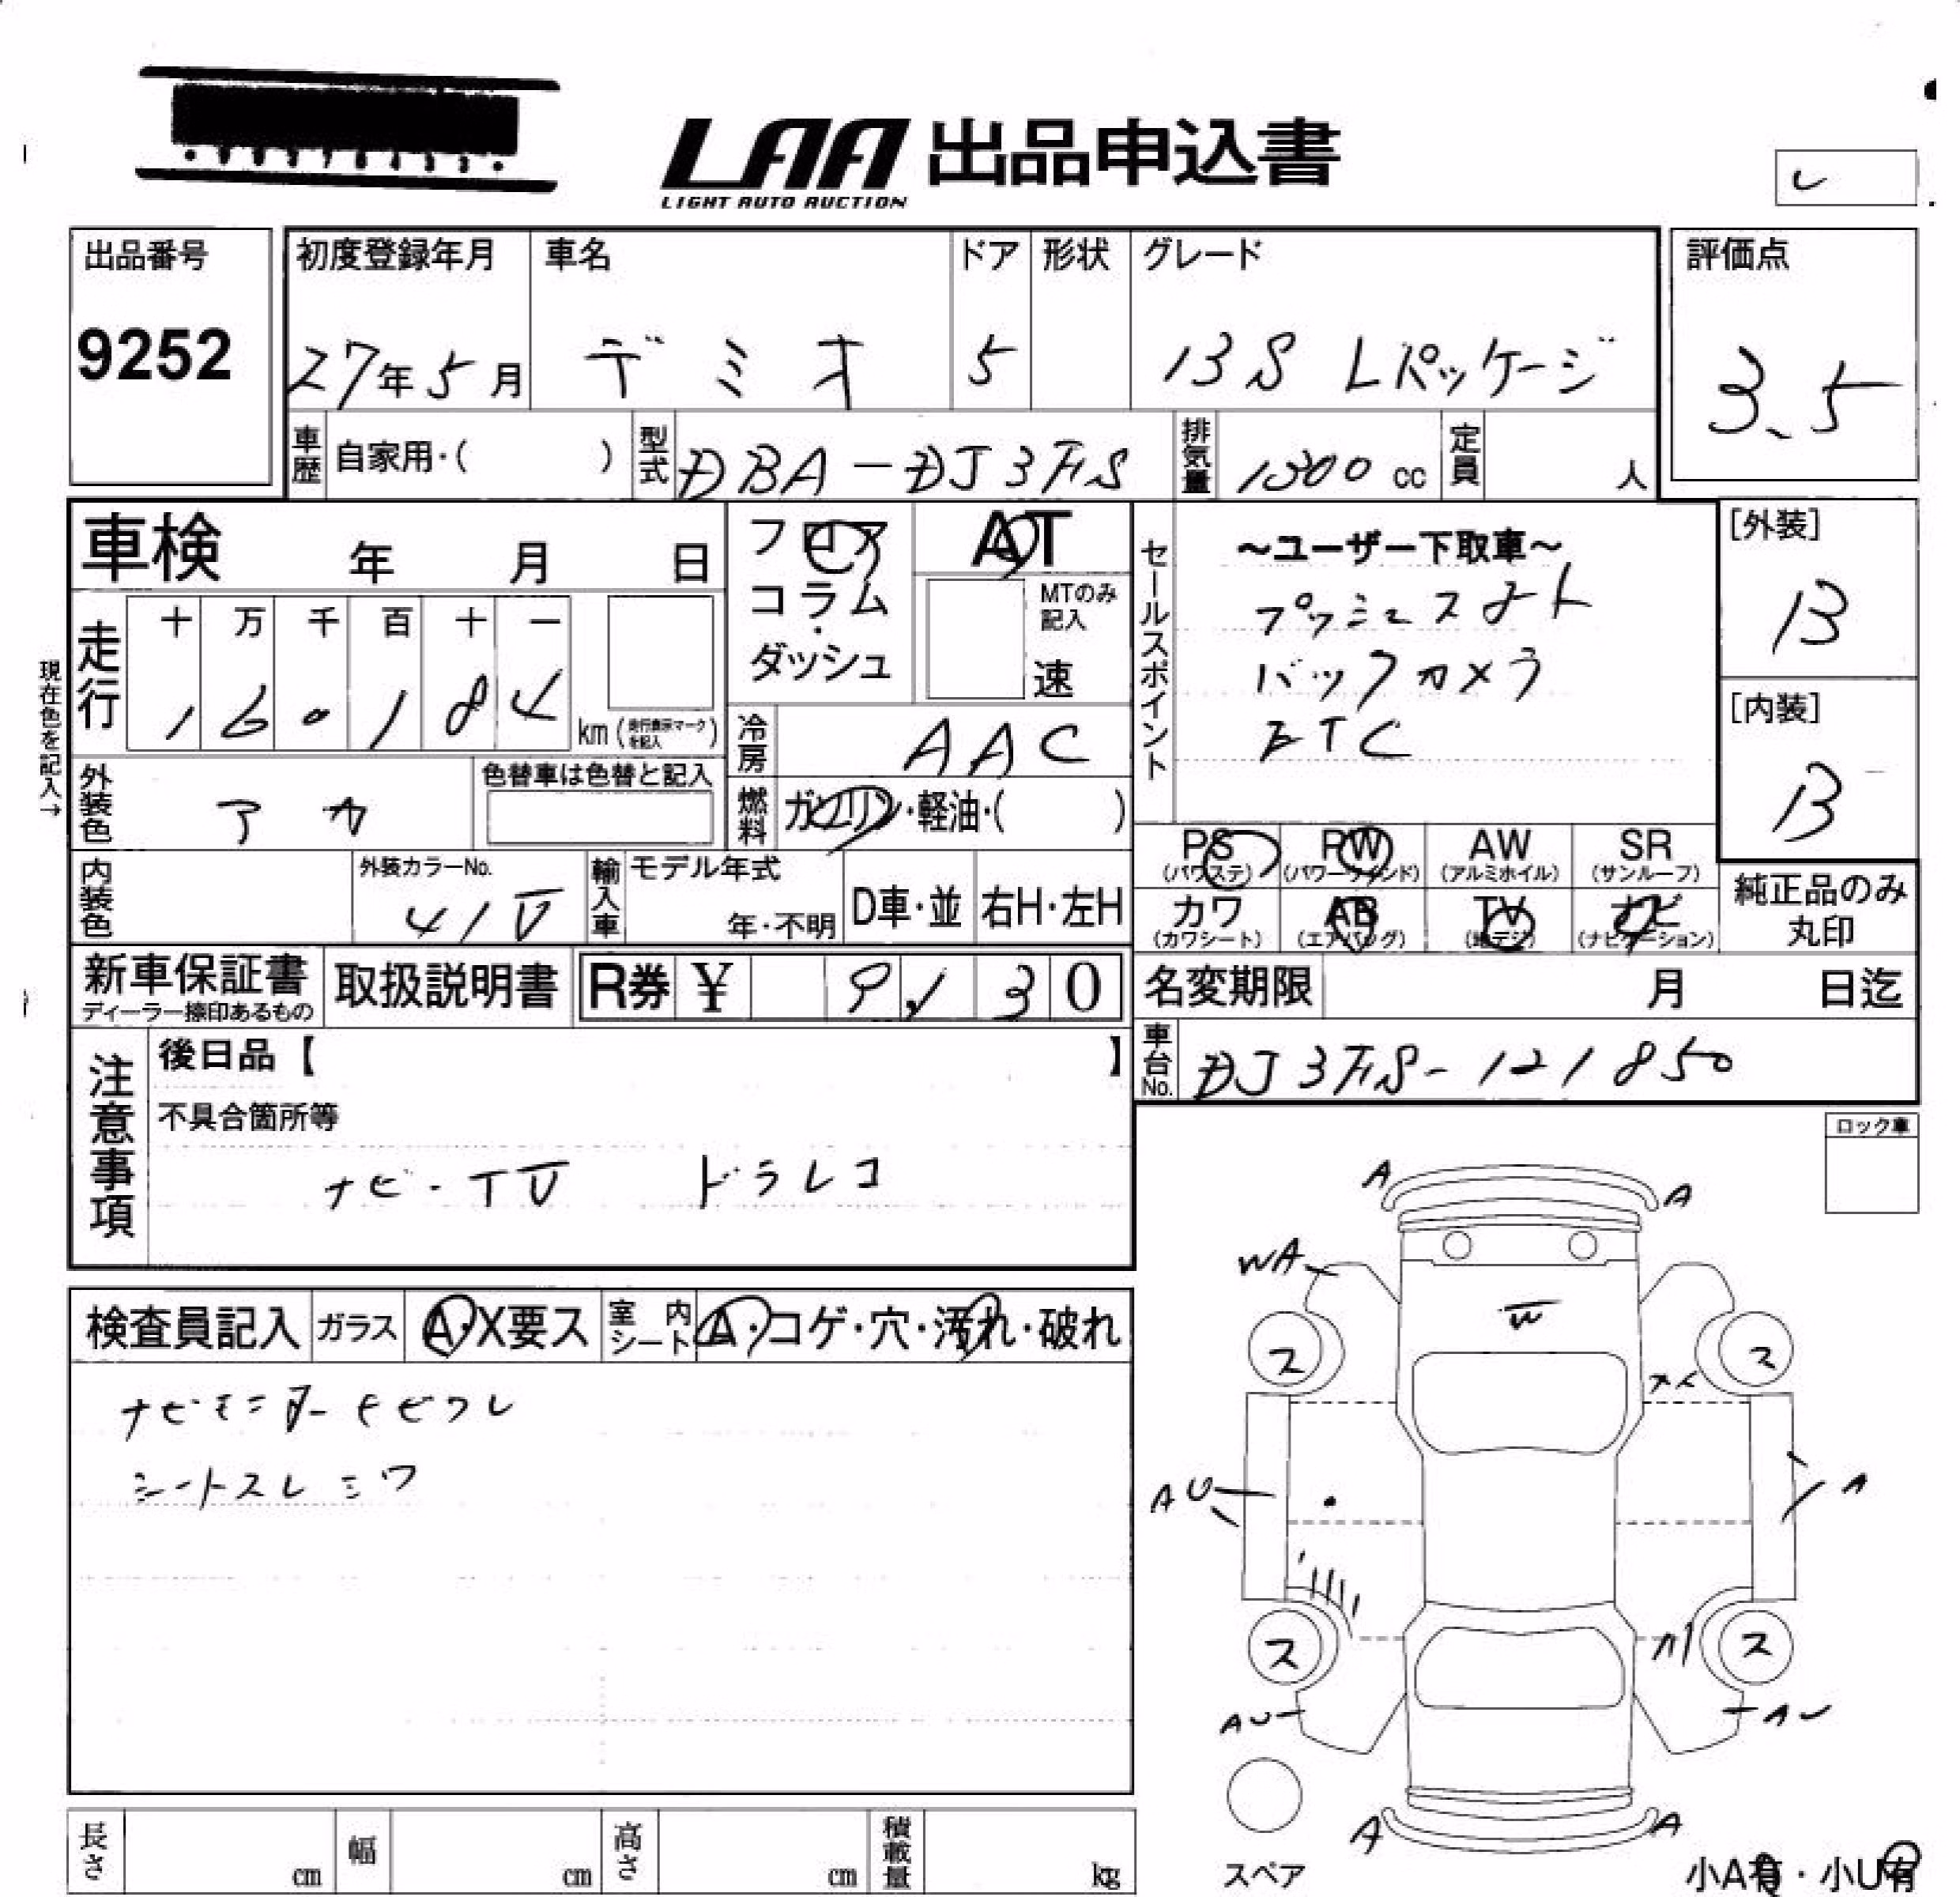 LAA 出品申込書
LIGHT AUTO AUCTION
レ
出品番号
9252
初度登録年月 車名 ドア 形状 グレード
27年5月 デミオ 5 13S Lパッケージ
評価点
3.5
車歴 自家用・( ) 型式 DBA-DJ3FS 排気量 1300 cc 定員 人
車検 年 月 日
フロア
コラム
・
ダッシュ
AT
MTのみ
記入
速
走行 十 万 千 百 十 一
160184 km (走行表示マークを記入)
現在色を記入→
冷房 AAC
外装色 アカ 色替車は色替と記入
燃料 ガソリン・軽油・( )
内装色 外装カラーNo. 41V
輸入車 モデル年式 年・不明 D車・並 右H・左H
セールスポイント
~ユーザー下取車~
プッシュスタート
バックカメラ
ETC
[外装]
B
[内装]
B
PS (パワステ) PW (パワーウインド) AW (アルミホイル) SR (サンルーフ)
カワ (カワシート) AB (エアバッグ) TV (地デジ) ナビ (ナビゲーション)
純正品のみ
丸印
新車保証書
ディーラー捺印あるもの
取扱説明書 R券 ¥ 9,130
名変期限 月 日迄
車台No. DJ3FS-121850
注意事項
後日品【 】
不具合箇所等
ナビ・TV ドラレコ
ロック車
検査員記入 ガラス A・X要ス 室内シート A・コゲ・穴・汚れ・破れ
ナビモニターキビワレ
シートスレシワ
A A
WA
W
ス ス
AU A
ス ス
AU AU
A A
スペア
小A有・小U有
長さ cm 幅 cm 高さ cm 積載量 kg